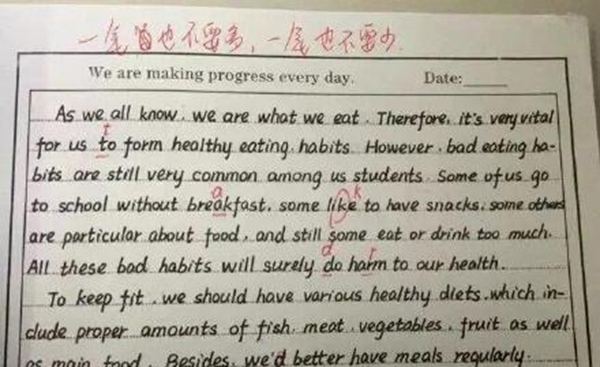 一尾也不要多，一尾也不要少
We are making progress every day. Date:
As we all know, we are what we eat. Therefore, it's very vital
for us to form healthy eating habits. However, bad eating ha-
bits are still very common among us students. Some of us go
a k
to school without breakfast, some like to have snacks, some others
are particular about food, and still some eat or drink too much.
d r
All these bad habits will surely do harm to our health.
To keep fit, we should have various healthy diets, which in-
clude proper amounts of fish, meat, vegetables, fruit as well
as main food. Besides, we'd better have meals regularly.